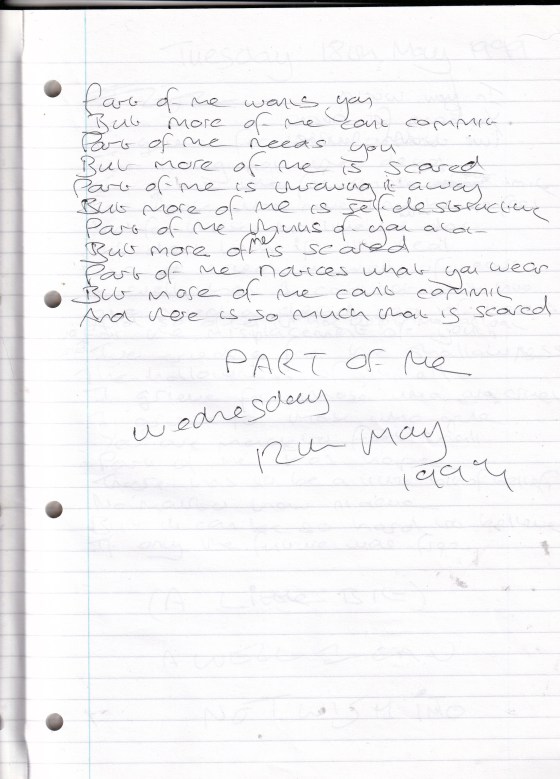 Part of me wants you
But more of me cant commit
Part of me needs you
But more of me is scared
Part of me is throwing it away
But more of me is self destructing
Part of me thinks of you alot
But more of me is scared
Part of me notices what you wear
But more of me cant commit
And there is so much that is scared
PART OF Me
Wednesday
12th May
1999